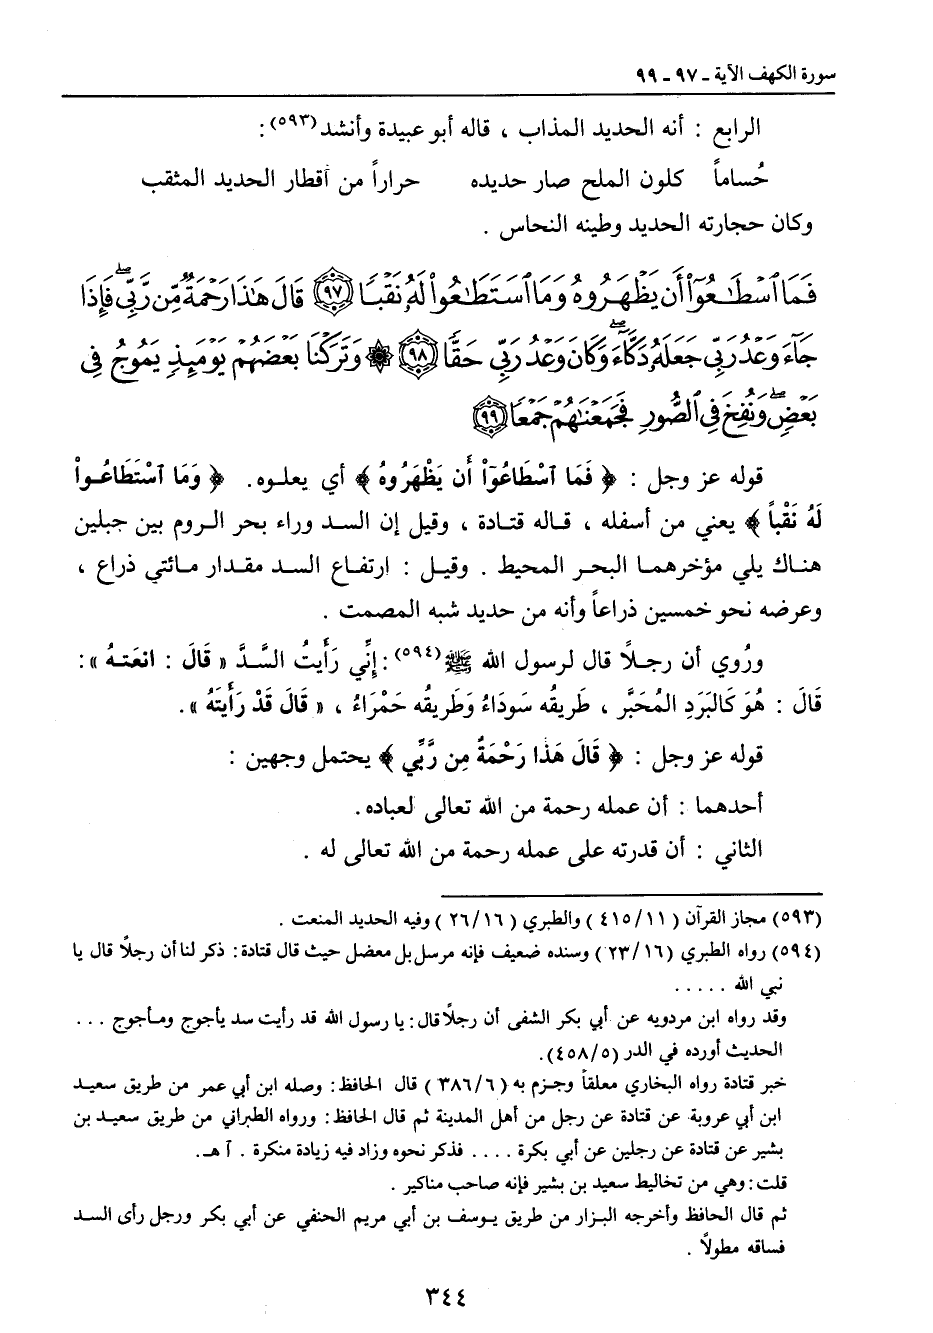 سورة الكهف الآية ـ ٩٧ ـ ٩٩
الرابع : أنه الحديد المذاب ، قاله أبو عبيدة وأنشد(٥٩٣):
حُساماً كلون الملح صار حديده حراراً من أقطار الحديد المثقب
وكان حجارته الحديد وطينه النحاس .
فَمَا ٱسْطَٰعُوٓا۟ أَن يَظْهَرُوهُ وَمَا ٱسْتَطَٰعُوا۟ لَهُۥ نَقْبًا ٩٧ قَالَ هَٰذَا رَحْمَةٌ مِّن رَّبِّى ۖ فَإِذَا
جَآءَ وَعْدُ رَبِّى جَعَلَهُۥ دَكَّآءَ ۖ وَكَانَ وَعْدُ رَبِّى حَقًّا ٩٨ ۞ وَتَرَكْنَا بَعْضَهُمْ يَوْمَئِذٍ يَمُوجُ فِى
بَعْضٍ ۖ وَنُفِخَ فِى ٱلصُّورِ فَجَمَعْنَٰهُمْ جَمْعًا ٩٩
قوله عز وجل : ﴿ فَمَا اسْطَاعُوٓاْ أَن يَظْهَرُوهُ ﴾ أي يعلوه. ﴿ وَمَا اسْتَطَاعُواْ
لَهُ نَقْباً ﴾ يعني من أسفله ، قاله قتادة ، وقيل إن السد وراء بحر الروم بين جبلين
هناك يلي مؤخرهما البحر المحيط . وقيل : ارتفاع السد مقدار مائتي ذراع ،
وعرضه نحو خمسين ذراعاً وأنه من حديد شبه المصمت .
ورُوي أن رجلاً قال لرسول الله ﷺ(٥٩٤): إِنِّي رَأَيتُ السَّدَّ « قَالَ : انعَتهُ »:
قَالَ : هُوَ كَالبَردِ المُحَبَّرِ ، طَرِيقُه سَودَاءُ وَطَرِيقُه حَمْرَاءُ ، « قَالَ قَدْ رَأَيتَهُ ».
قوله عز وجل : ﴿ قَالَ هَذَا رَحْمَةٌ مِن رَّبِّي ﴾ يحتمل وجهين :
أحدهما : أن عمله رحمة من الله تعالى لعباده.
الثاني : أن قدرته على عمله رحمة من الله تعالى له .
(٥٩٣) مجاز القرآن ( ٤١٥/١١ ) والطبري ( ٢٦/١٦ ) وفيه الحديد المنعت .
(٥٩٤) رواه الطبري ( ٢٣/١٦ ) وسنده ضعيف فإنه مرسل بل معضل حيث قال قتادة: ذكر لنا أن رجلاً قال يا
نبي الله . . . . .
وقد رواه ابن مردويه عن أبي بكر الشفى أن رجلاً قال: يا رسول الله قد رأيت سد يأجوج ومأجوج ...
الحديث أورده في الدر (٤٥٨/٥).
خبر قتادة رواه البخاري معلقاً وجزم به ( ٣٨٦/٦ ) قال الحافظ: وصله ابن أبي عمر من طريق سعيد
ابن أبي عروبة عن قتادة عن رجل من أهل المدينة ثم قال الحافظ: ورواه الطبراني من طريق سعيد بن
بشير عن قتادة عن رجلين عن أبي بكرة .... فذكر نحوه وزاد فيه زيادة منكرة . آ هـ.
قلت: وهي من تخاليط سعيد بن بشير فإنه صاحب مناكير .
ثم قال الحافظ وأخرجه البزار من طريق يوسف بن أبي مريم الحنفي عن أبي بكر ورجل رأى السد
فساقه مطولاً .
٣٤٤